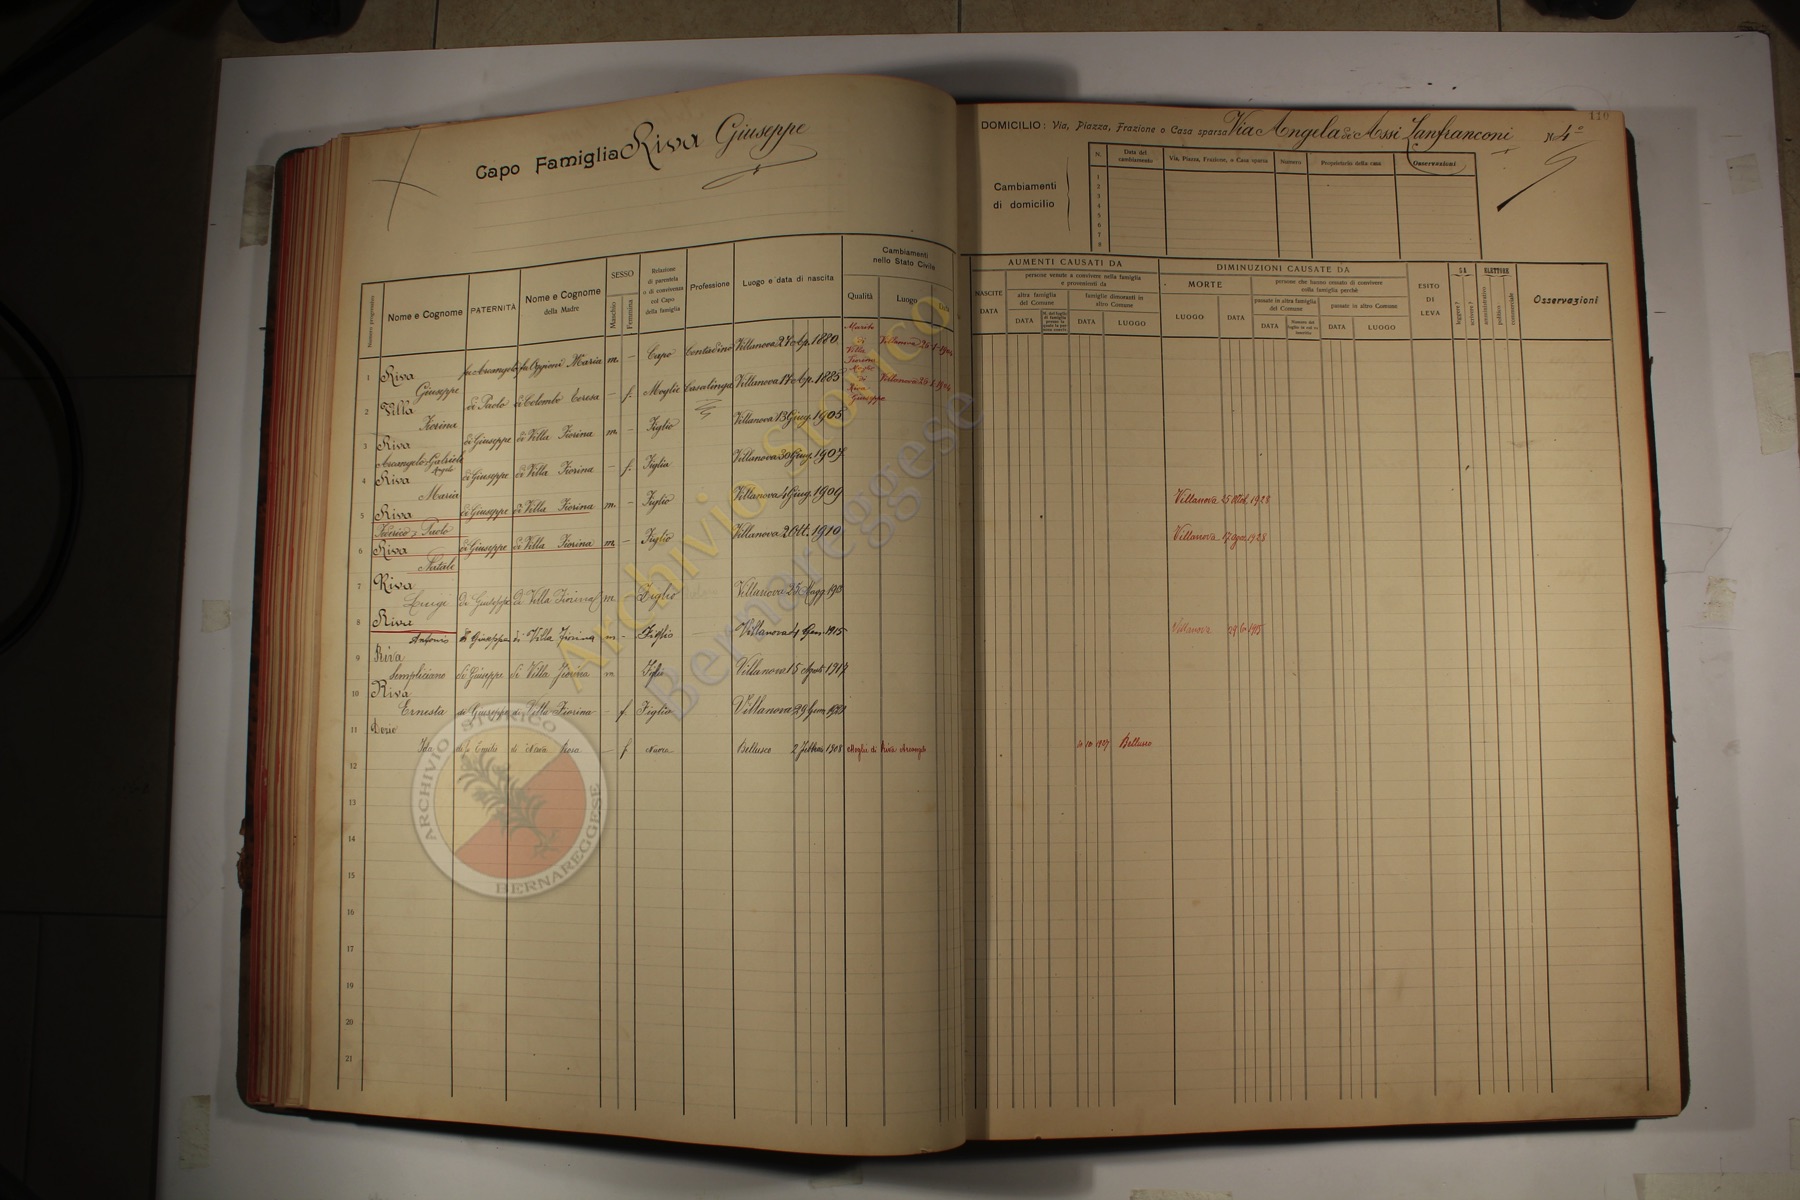 Capo Famiglia Riva Giuseppe
110
DOMICILIO: Via, Piazza, Frazione o Casa sparsa Via Angela de Assi Lanfranconi N 4
Cambiamenti di domicilio
N. Data del cambiamento Via, Piazza, Frazione, o Casa sparsa Numero Proprietario della casa Osservazioni
1
2
3
4
5
6
7
8
Numero progressivo
Nome e Cognome
PATERNITÀ
Nome e Cognome della Madre
SESSO
Maschio
Femmina
Relazione di parentela o di convivenza col Capo della famiglia
Professione
Luogo e data di nascita
Cambiamenti nello Stato Civile
Qualità
Luogo
AUMENTI CAUSATI DA
NASCITE
DATA
persone venute a convivere nella famiglia e provenienti da
altra famiglia del Comune
DATA
famiglie dimoranti in altro Comune
DATA
LUOGO
DIMINUZIONI CAUSATE DA
MORTE
LUOGO
DATA
persone che hanno cessato di convivere colla famiglia perchè
passate in altra famiglia del Comune
DATA
passate in altro Comune
DATA
LUOGO
ESITO DI LEVA
SA
leggere?
scrivere?
ELETTORE
amministrativo
politico
commerciale
Osservazioni
1 Riva Giuseppe fu Arcangelo fu Oggioni Maria m. - Capo Contadino Villanova 27 Ap. 1880 Marito di Villa Fiorina Villanova 26 1 1904
2 Villa Fiorina di Paolo di Colombo Teresa - f. Moglie Casalinga Villanova 17 Ap. 1885 Moglie di Riva Giuseppe Villanova 26 1 1904
3 Riva Arcangelo Gabriele Angelo di Giuseppe di Villa Fiorina m. - Figlio Villanova 13 Giug. 1905
4 Riva Maria di Giuseppe di Villa Fiorina - f. Figlia Villanova 30 Giug. 1907
5 Riva Federico Paolo di Giuseppe di Villa Fiorina m. - Figlio Villanova 4 Giug. 1909 Villanova 25 Ott. 1928
6 Riva Natale di Giuseppe di Villa Fiorina m. - Figlio Villanova 2 Ott. 1910 Villanova 17 1928
7 Riva Luigi di Giuseppe di Villa Fiorina m. Figlio Villanova 25 Magg.
8 Riva Antonio di Giuseppe di Villa Fiorina m - Figlio Villanova 4 Gen. 1915 Villanova 29 6 1915
9 Riva Simpliciano di Giuseppe di Villa Fiorina m Figlio Villanova 15 Agosto 1917
10 Riva Ernesta di Giuseppe di Villa Fiorina - f. Figlia Villanova 29
11 Ida di Emilio di Rosa - f Nuora Bellusco 2 Febbraio 1908 Moglie di Riva Arcangelo 10 1927 Bellusco
12
13
14
15
16
17
18
19
20
21
Archivio Storico
Bernareggese
ARCHIVIO STORICO
BERNAREGGESE